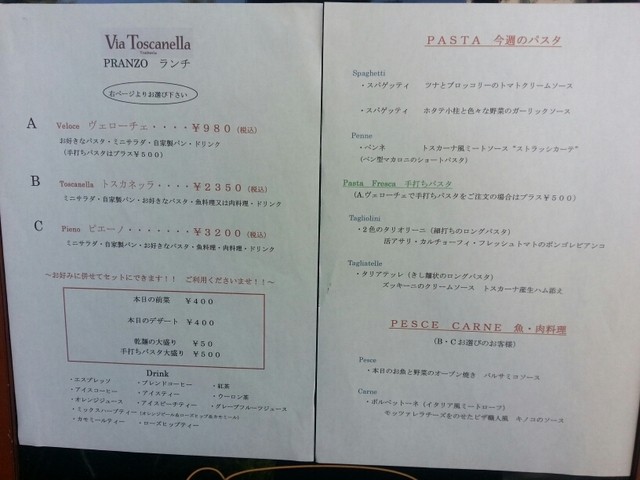 Via Toscanella
Trattoria
PRANZO ランチ
右ページよりお選び下さい
A Veloce ヴェローチェ・・・・¥980(税込)
お好きなパスタ・ミニサラダ・自家製パン・ドリンク
(手打ちパスタはプラス¥500)
B Toscanella トスカネッラ・・・・¥2350(税込)
ミニサラダ・自家製パン・お好きなパスタ・魚料理又は肉料理・ドリンク
C Pieno ピエーノ・・・・・・・¥3200(税込)
ミニサラダ・自家製パン・お好きなパスタ・魚料理・肉料理・ドリンク
~お好みに併せてセットにできます!! ご利用くださいませ!!~
本日の前菜 ¥400
本日のデザート ¥400
乾麺の大盛り ¥50
手打ちパスタ大盛り ¥500
Drink
・エスプレッソ ・ブレンドコーヒー ・紅茶
・アイスコーヒー ・アイスティー ・ウーロン茶
・オレンジジュース ・アイスピーチティー ・グレープフルーツジュース
・ミックスハーブティー(オレンジピール&ローズヒップ&カモミール)
・カモミールティー ・ローズヒップティー
PASTA 今週のパスタ
Spaghetti
・スパゲッティ ツナとブロッコリーのトマトクリームソース
・スパゲッティ ホタテ小柱と色々な野菜のガーリックソース
Penne
・ペンネ トスカーナ風ミートソース“ストラッシカーテ”
(ペン型マカロニのショートパスタ)
Pasta Fresca 手打ちパスタ
(A,ヴェローチェで手打ちパスタをご注文の場合はプラス¥500)
Tagliolini
・2色のタリオリーニ(細打ちのロングパスタ)
活アサリ・カルチョーフィ・フレッシュトマトのボンゴレビアンコ
Tagliatelle
・タリアテッレ(きし麺状のロングパスタ)
ズッキーニのクリームソース トスカーナ産生ハム添え
PESCE CARNE 魚・肉料理
(B・Cお選びのお客様)
Pesce
・本日のお魚と野菜のオーブン焼き バルサミコソース
Carne
・ポルペットーネ(イタリア風ミートローフ)
モッツァレラチーズをのせたピザ職人風 キノコのソース